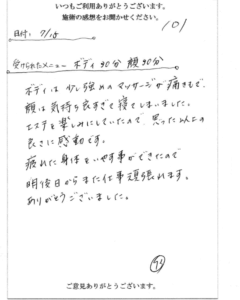 いつもご利用ありがとうございます。
施術の感想をお聞かせください。
101
日付: 7/18
受けられたメニュー ボディ90分 顔90分
ボディは少し強めのマッサージが痛きもで、
顔は気持ち良すぎて寝てしまいました。
エステを楽しみにしていたので、思った以上の
良さに感動です。
疲れた身体をいやす事ができたので
明後日からまた仕事頑張れます。
ありがとうございました。
ご意見ありがとうございます。